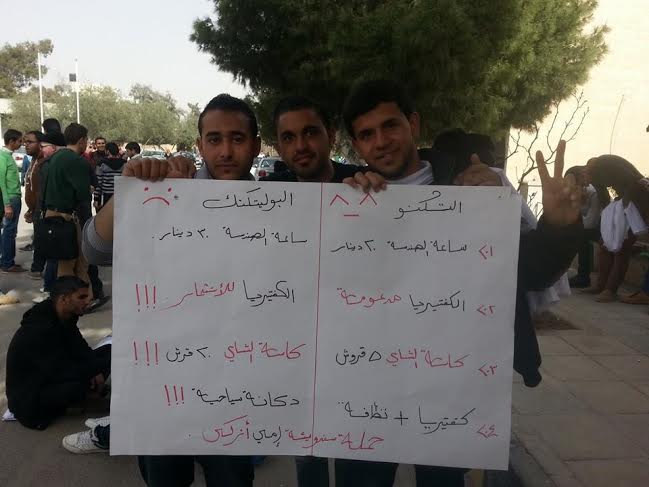 التكنو ^_^
١. ساعة الهندسة ٢٠ دينار
٢. الكفتيريا مدعومة
٣. كاسة الشاي ٥ قروش
٤. كفتيريا + نظافة
البوليتكنك :(
ساعة الهندسة ٣٠ دينار.
الكفتيريا للاستثمار !!!
كاسة الشاي ٢٠ قرش !!!
دكانة سياحية !!!
حملة سندويشة إمي أزكى.